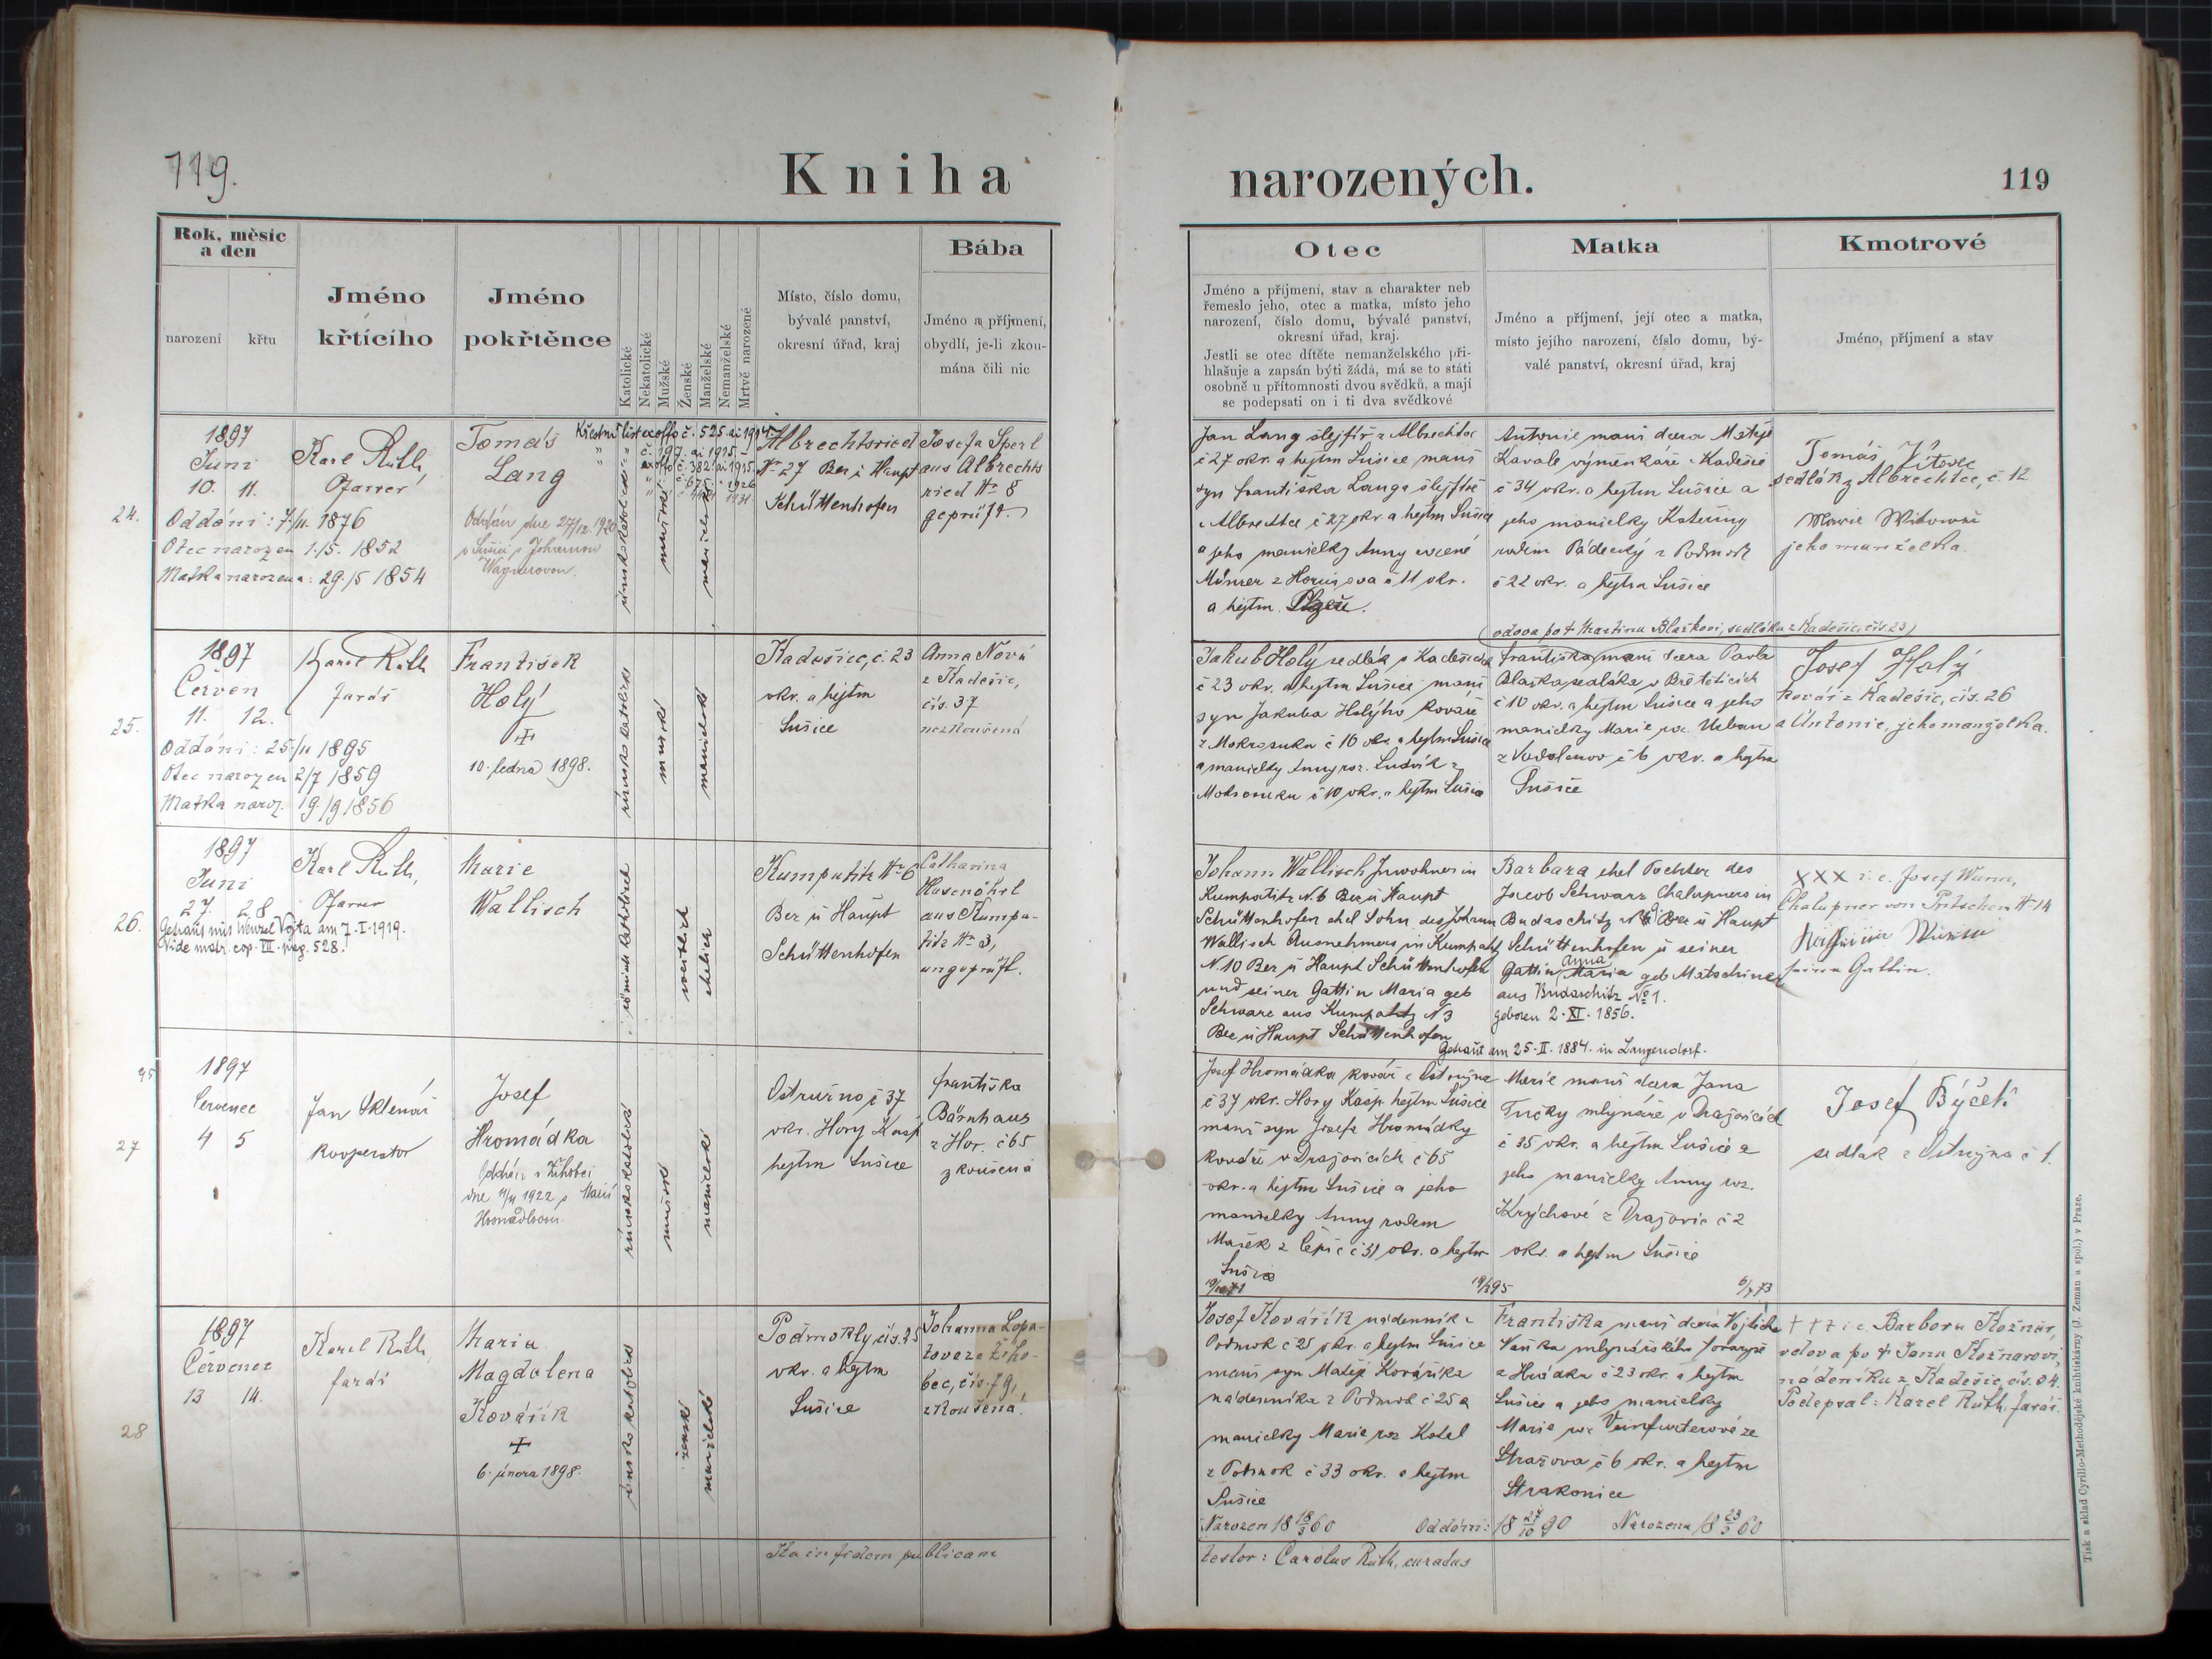 119.
Kniha
narozených.
119
Rok, měsíc
a den
narození
křtu
Jméno
křtícího
Jméno
pokřtěnce
Katolické
Nekatolické
Mužské
Ženské
Manželské
Nemanželské
Mrtvě narozené
Místo, číslo domu,
bývalé panství,
okresní úřad, kraj
Bába
Jméno a příjmení,
obydlí, je-li zkou-
mána čili nic
Otec
Jméno a příjmení, stav a charakter neb
řemeslo jeho, otec a matka, místo jeho
narození, číslo domu, bývalé panství,
okresní úřad, kraj.
Jestli se otec dítěte nemanželského při-
hlašuje a zapsán býti žádá, má se to státi
osobně u přítomnosti dvou svědků, a mají
se podepsati on i ti dva svědkové
Matka
Jméno a příjmení, její otec a matka,
místo jejího narození, číslo domu, bý-
valé panství, okresní úřad, kraj
Kmotrové
Jméno, příjmení a stav
24.
1897
Juni
10. 11.
Oddáni: 7/11. 1876
Otec narozen 1./5. 1852
Matka narozena: 29./5 1854
Karl Rüth,
Pfarrer
Tomáš
Lang
Oddán dne 27/12. 1920
v Sušici s Johannou
Wagnerovou.
Křestní list ex offo č. 525. ai 1914.
římskokatolické
mužské
manželské
Albrechtsried
Nr 27 Bez. u Haupt
Schüttenhofen
Josefa Sperl
aus Albrechts
ried Nr 8
geprüft.
Jan Lang šlejfíř z Albrechtec
č 27 okr. a hejtm Sušice manž
syn Františka Langa šlejfíře
z Albrechtec č 27 okr a hejtm Sušice
a jeho manželky Anny rozené
z č 11 okr.
a hejtm.
Antonie manž dcera Matěje
Kavale výměnkáře z Kadešic
č 34 okr. a hejtm Sušice a
jeho manželky Kateřiny
rodem z Podmok
č 22 okr. a hejtm Sušice
Tomáš Vítovec
sedlák z Albrechtec, č 12
Marie
jeho manželka.
25.
1897
Červen
11. 12.
Oddáni: 25./11 1895
Otec narozen 2/7 1859
Matka naroz. 19./9 1856
Karel Rüth
farář
František
Holý
✝
10. ledna 1898.
římsko katolické
mužské
manželské
Kadešice, č. 23
okr. a hejtm
Sušice
Anna Nová
z Kadešic,
čís. 37
nezkoušená
Jakub Holý sedlák z Kadešic
č 23 okr. a hejtm Sušice manž
syn Jakuba Holýho kováře
z Mokrosuku č 16 okr. a hejtm Sušice
a manželky Anny roz. Ludvík z
Mokrosuku č 10 okr. a hejtm Sušice
(vdova po † Martinu Blaškovi, sedláku z Kadešic, čís. 23)
Františka manž dcera Pavla
Blaška sedláka v Břetěticích
č 10 okr. a hejtm Sušice a jeho
manželky Marie roz. Urban
z č 6 okr. a hejtm
Sušice
Josef Holý
kovář z Kadešic, čís. 26
a Antonie, jeho manželka.
26.
1897
Juni
27. 28
Getraut mit Wenzel Vojta am 7. I. 1919.
Vide matr. cop. III. pag. 528.
Karl Rüth,
Pfarrer
Marie
Wallisch
römisch katholisch
weiblich
ehelich
Kumpatitz Nr 6
Bez u Haupt
Schüttenhofen
Catharina
Hasenöhrl
aus Kumpa-
titz Nr 3,
ungeprüft.
Johann Wallisch Inwohner in
Kumpatitz N. 6 Bez u Haupt
Schüttenhofen ehel Sohn des Johann
Wallisch Ausnehmers in Kumpatitz
N. 10 Bez u Haupt Schüttenhofen
und seiner Gattin Maria geb
Schwarz aus Kumpatitz N 3
Bez u Haupt Schüttenhofen
Barbara ehel Tochter des
Jacob Schwarz Chalupners in
Budaschitz N Bez u Haupt
Schüttenhofen u seiner
Anna
Gattin Maria geb Matschiner
aus Budaschitz No 1.
geboren 2. XI. 1856.
Getraut am 25. II. 1884. in Langendorf.
XXX i. e. Josef Wurm,
Chalupner von Nr 14
seine Gattin.
27
1897
Červenec
4 5
Jan Sklenář
kooperator
Josef
Hromádka
Oddán v Žihobci
dne 11/11 1922 s Marií
římskokatolické
mužské
manželské
Ostružno č 37
okr. Hory Kašp
hejtm Sušice
Františka
Bärnhaus
z Hor. č 65
zkoušená
Josef Hromádka kovář z Ostružna
č 37 okr. Hory Kašp. hejtm Sušice
manž syn Josefa Hromádky
kováře v Dražovicích č 65
okr. a hejtm Sušice a jeho
manželky Anny rodem
Mašek z Čepic č 31 okr. a hejtm
Sušice
Marie manž dcera Jana
Tučky mlynáře v Dražovicích
č 35 okr. a hejtm Sušice a
jeho manželky Anny roz.
Krýchové z Dražovic č 2
okr. a hejtm Sušice
Josef Býček
sedlák z Ostružna č 1.
28
1897
Červenec
13 14.
Karel Rüth,
farář
Maria
Magdalena
Kovářík
✝
6. února 1898.
římsko katolické
ženské
manželské
Podmokly, čís. 25
okr. a hejtm
Sušice
Johanna Lopa-
tová ze Žiho-
bec, čís. 79,
zkoušená.
Josef Kovářík nádenník z
Podmok č 25 okr. a hejtm Sušice
manž syn Matěje Kováříka
nádenníka z Podmok č 25 a
manželky Marie roz Kotal
z Podmok č 33 okr. a hejtm
Sušice
Narozen 18 18/3 60
Oddáni: 18 28/10 90
Františka manž dcera Vojtěcha
Vaňka mlynářského tovaryše
z Hrádku č 23 okr. a hejtm
Sušice a jeho manželky
Marie roz ze
Stražova č 6 okr. a hejtm
Strakonice
Narozena 18 23/5 60
† † † i. e. Barbora Kožnar,
vdova po † Janu Kožnarovi,
nádeníku z Kadešic, čís. 04.
Podepsal: Karel Rüth, farář.
Ita in fidem publicam
testor: Carolus Rüth, curatus
Tisk a sklad Cyrillo-Methodějské knihtiskárny (J. Zeman a spol.) v Praze.